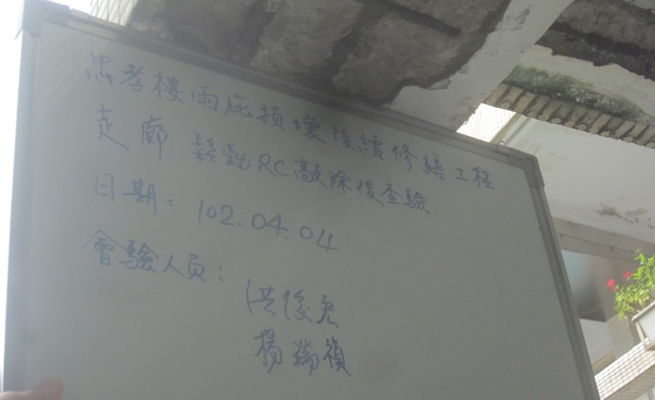 忠孝樓雨庇損壞後續修繕工程
走廊 鬆動RC敲除後查驗
日期：102.04.04
會驗人員：
洪俊
楊瑞禎